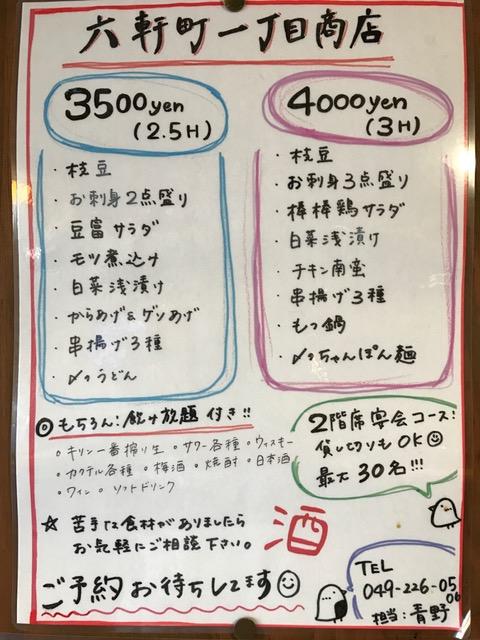 六軒町一丁目商店
3500yen
(2.5H)
・枝豆
・お刺身2点盛り
・豆富サラダ
・モツ煮込み
・白菜浅漬け
・からあげ&ゲソあげ
・串揚げ3種
・〆のうどん
4000yen
(3H)
・枝豆
・お刺身3点盛り
・棒棒鶏サラダ
・白菜浅漬け
・チキン南蛮
・串揚げ3種
・もつ鍋
・〆のちゃんぽん麺
◎もちろん!飲み放題付き!!
○キリン一番搾り生 ○サワー各種 ○ウィスキー
○カクテル各種 ○梅酒 ○焼酎 ○日本酒
○ワイン ○ソフトドリンク
2階席宴会コース!
貸し切りもOK
最大30名!!!
☆苦手な食材がありましたら
お気軽にご相談下さい。
酒
ご予約お待ちしてます
TEL
049-226-05
06
担当:青野